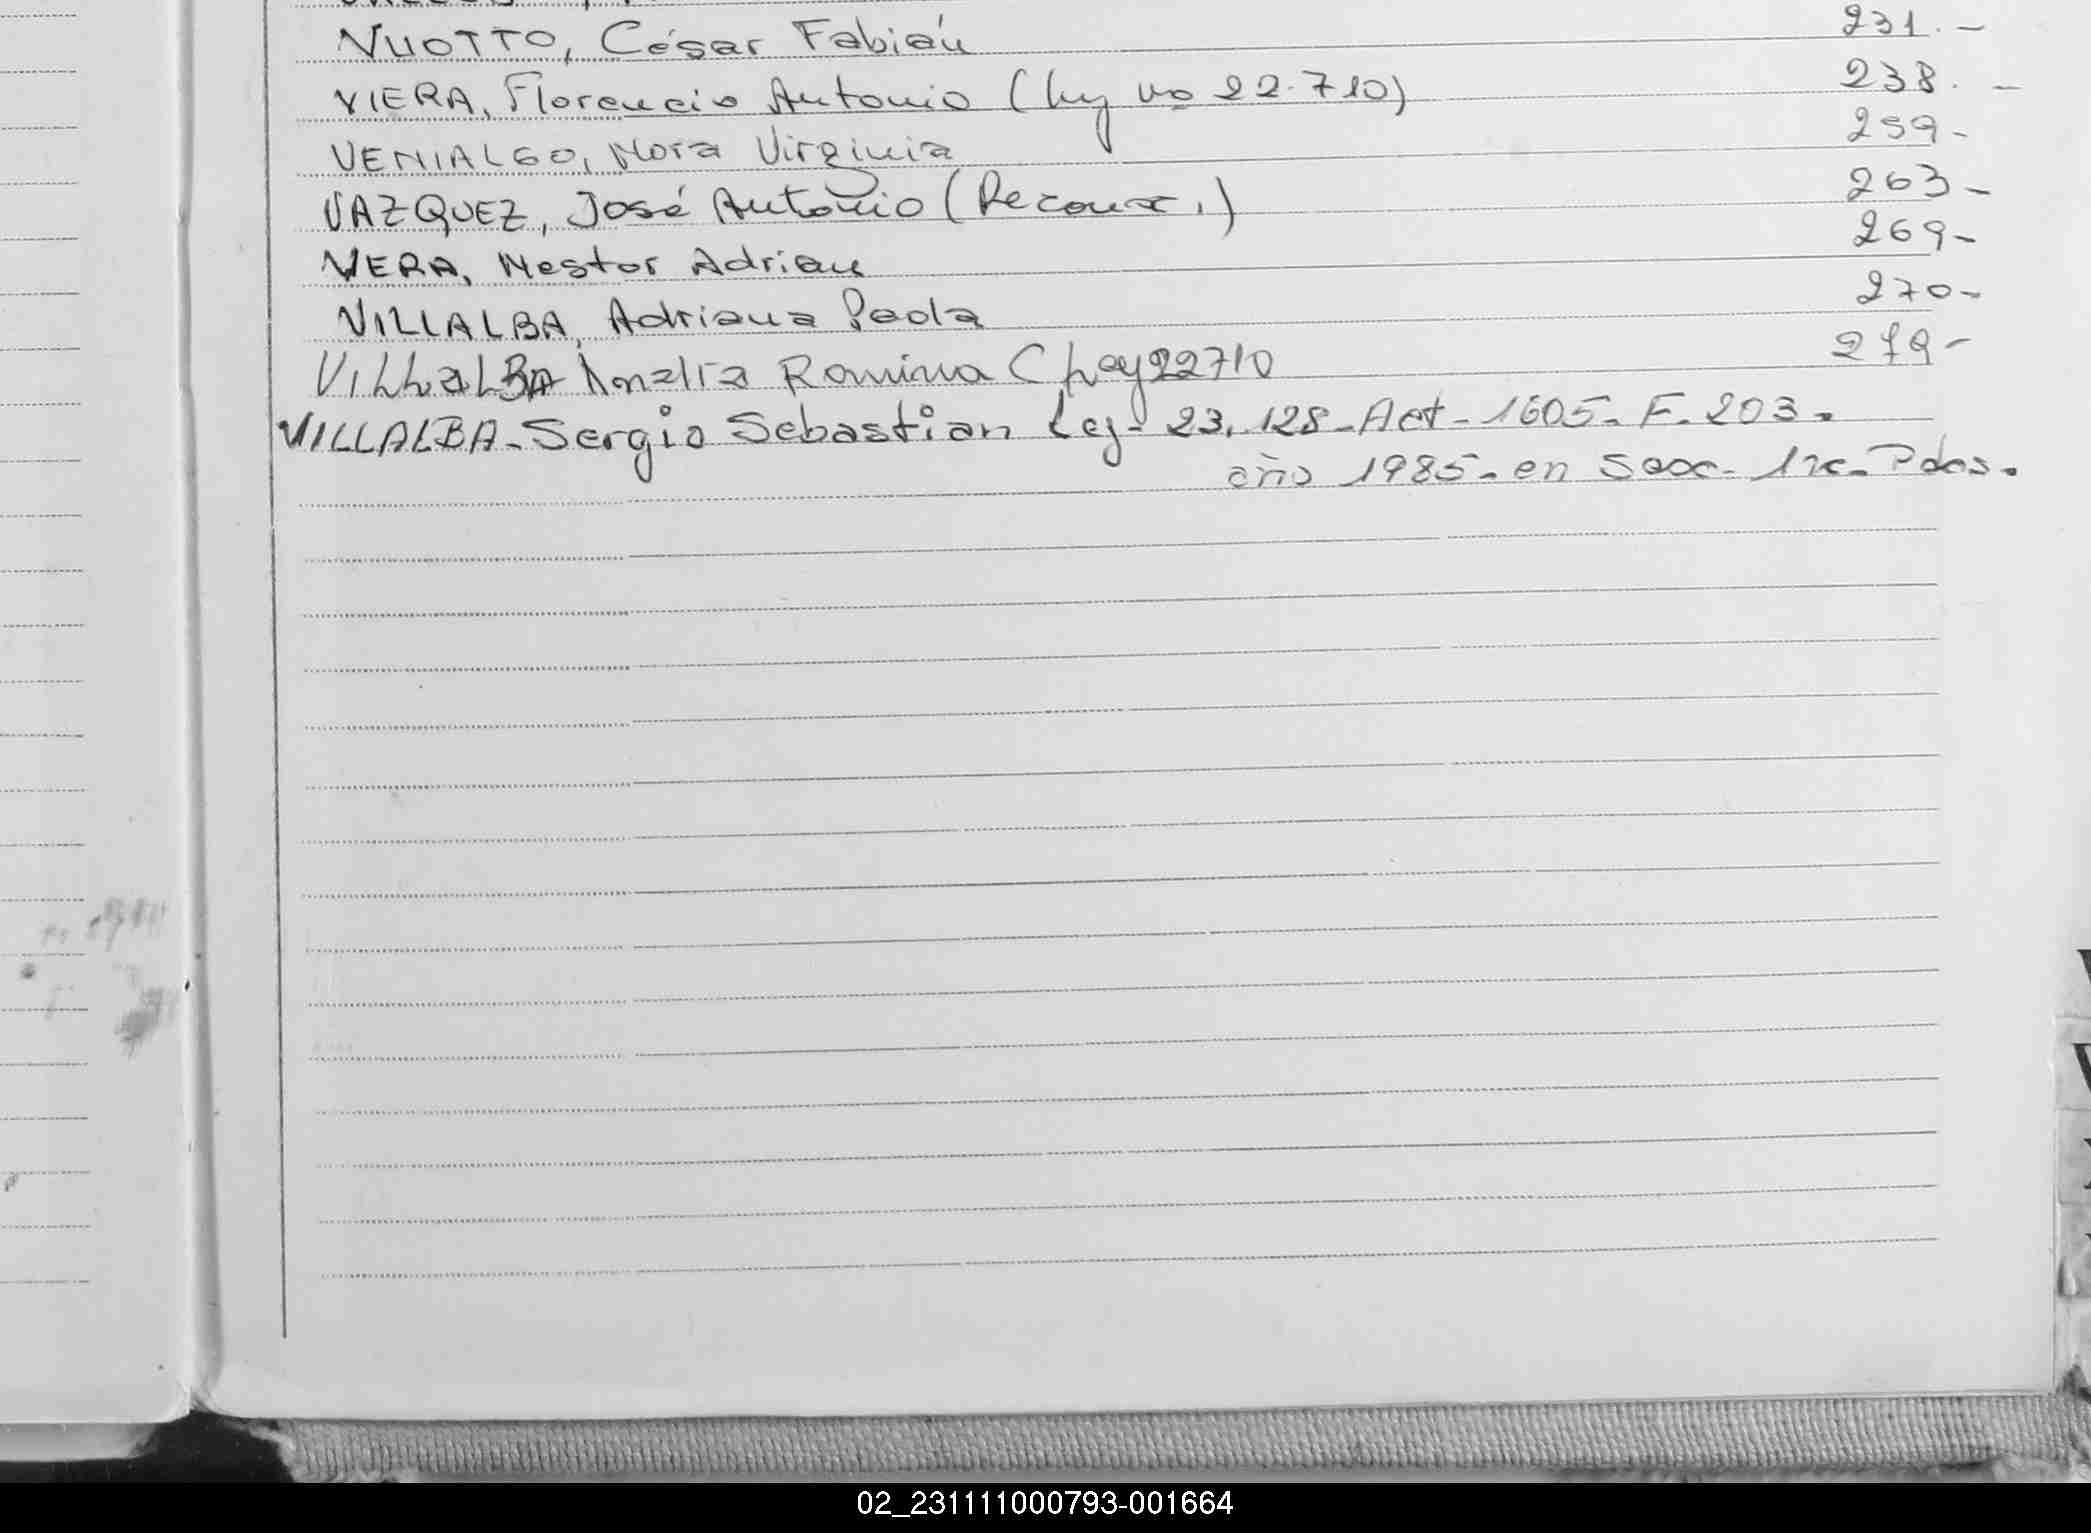 VUOTTO, César Fabián 231.-
VIERA, Florencio Antonio (Ley no 22.710) 238.-
VENIALGO, Nora Virginia 259-
VAZQUEZ, José Antonio (Reconoc.) 263-
VERA, Nestor Adrian 269-
VILLALBA, Adriana Paola 270-
VILLALBA Analía Romina (Ley 22710 279-
VILLALBA-Sergio Sebastian Ley-23.128-Act-1605-F.203.
año 1985-en Secc-1ra-Pdos.
02_231111000793-001664